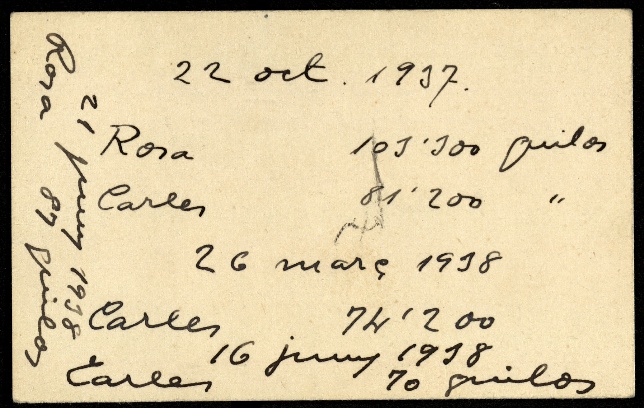 22 oct. 1937.
Rosa 103'300 quilos
Carles 81'200 "
26 març 1938
Carles 74'200
16 juny 1938
Carles 70 quilos
21 juny 1938
Rosa 87 quilos